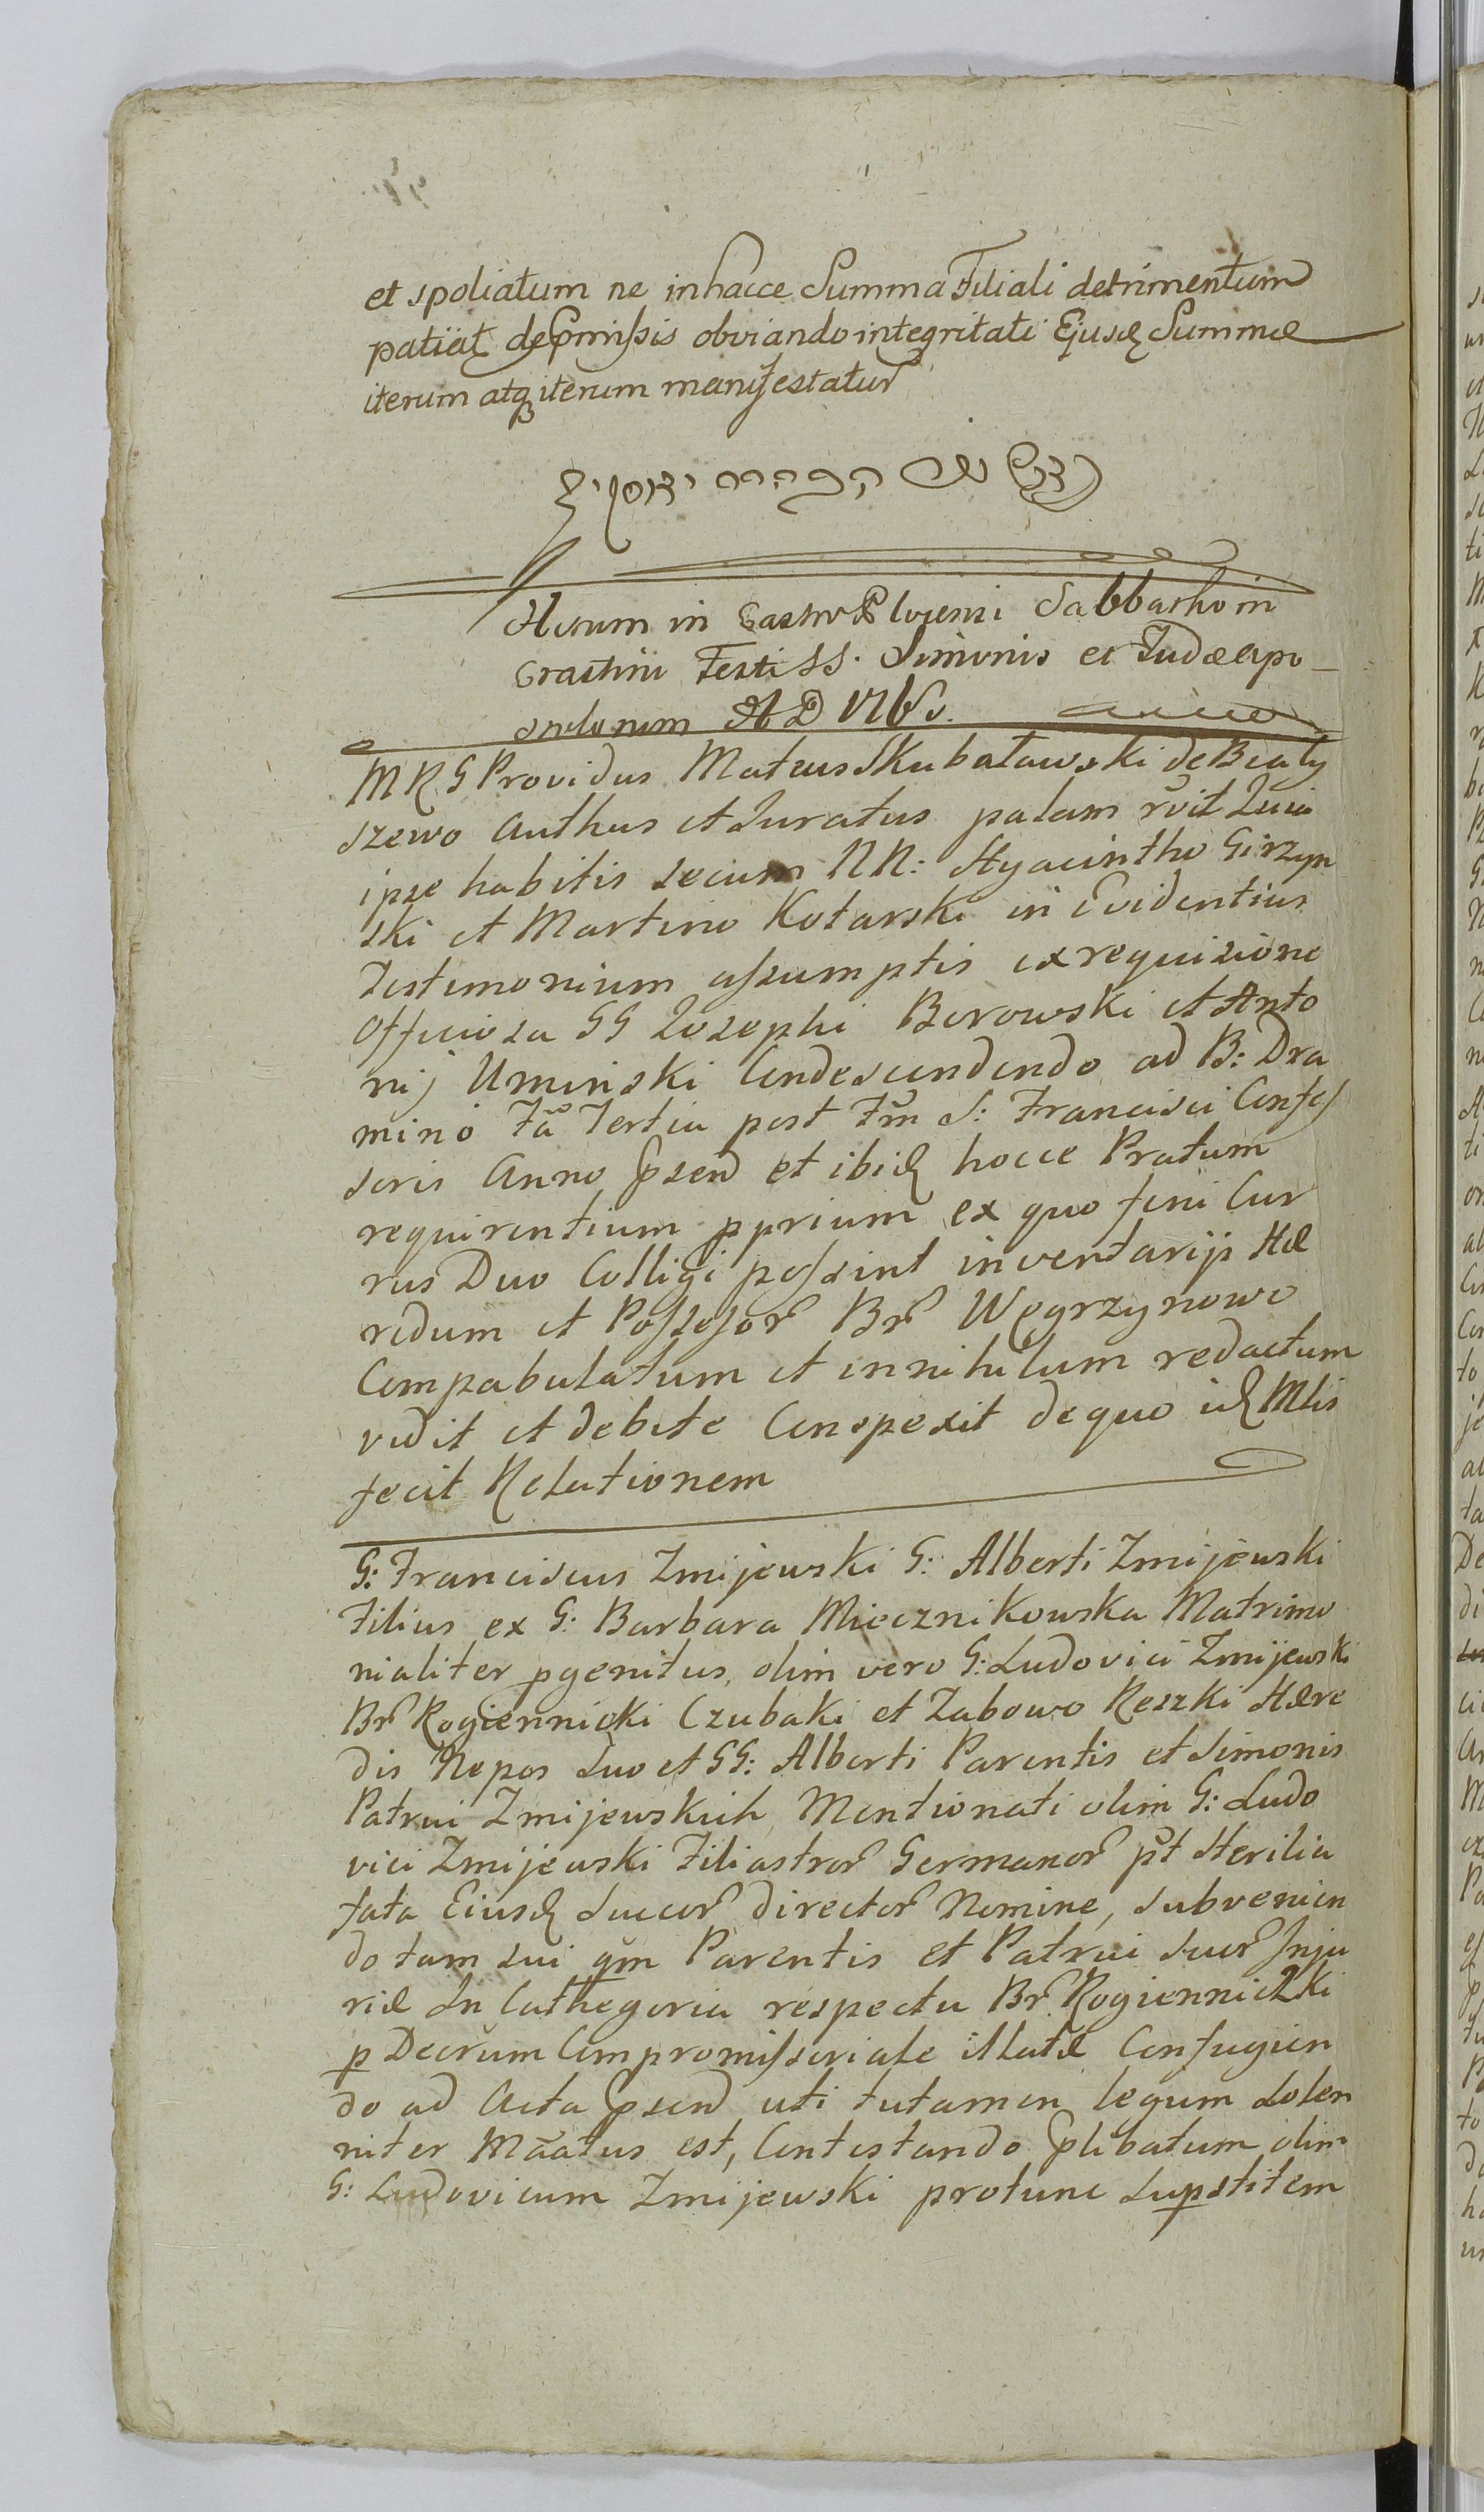 et spoliatum ne in hacce Summa Filiali detrimentum
patiat de pmissis obviando integritati Ejusd Summæ
iterum atq iterum manifestatur
Actum in Castro Sabbatho in
Crastino Festi SS. Simonis et Judæ Apo
stolorum A D
MRG Providus Mateus Skubatawski de Biały
szewo Authus et Juratus palam rvit Quia
ipse habitis secum NN: Hyacintho Girzyn
ski et Martino Kotarski in Evidentius
Testimonium assumptis ex requisione
Officiosa GG Josephi Borowski et Anto
nij Uminski Condescendendo ad B: Dra
mino Fã Tertia post Ftm S: Francisci Confes
soris Anno psen et ibid hocce Pratum
requirentium pprium ex quo feni Cur
rus Duo Colligi possint inventarijs Hæ
redum et Possessor Br Węgrzynowo
Compabulatum et in nihilum redactum
vidit et debite Conspexit de quo id Mlis
fecit Relationem
G: Franciscus Zmijewski G: Alberti Zmijewski
Filius ex G: Barbara Miecznikowska Matrimo
nialiter pgenitus, olim vero G: Ludovici Zmijewski
Br Rogiennicki Czubaki et Zabowo Reszki Hære
dis Nepos Suo et GG: Alberti Parentis et Simonis
Patrui Zmijewskich Mentionati olim G: Ludo
vici Zmijewski Filiastror Germanor pt Sterilia
fata Eiusd Succor director Nomine, subvenien
do tam sui qm Parentis et Patrui suor Inju
riæ In Cathegoria respectu Br Rogienniczki
p Decrum Compromissoriale illatæ Confugien
do ad Acta psen uti tutamen legum Solen
niter Mãatus est, Contestando plibatum olim
G: Ludovicum Zmijewski protunc Supstitem